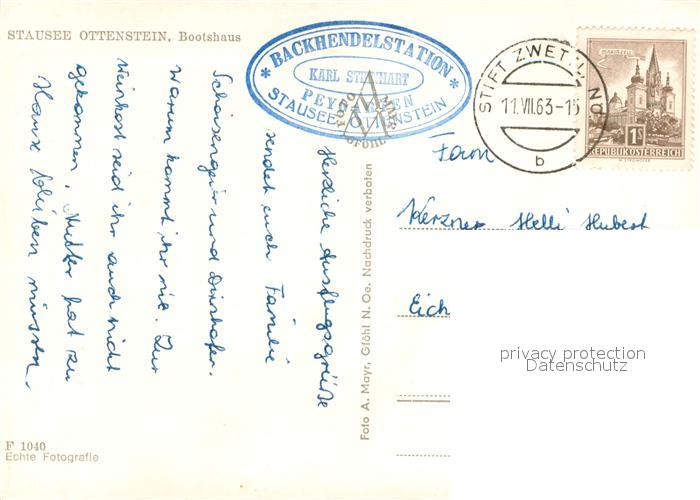 STAUSEE OTTENSTEIN, Bootshaus
* BACKHENDELSTATION *
KARL
STAUSEE OTTENSTEIN
FOTO MAYR GFÖHL
STIFT ZWETTL NÖ
11.VII.63-15
b
MARIAZELL
1S
REPUBLIK ÖSTERREICH
Herzliche Ausflugsgrüße
sendet euch Familie
und
Warum kommt ihr nie. Zur
Weinkost seid ihr auch nicht
gekommen. Mutter hat zu
Hause bleiben müssen.
Foto A. Mayr, Gföhl N.Oe. Nachdruck verboten
Fam
Kerzner Helli Hubert
Eich
privacy protection
Datenschutz
F 1040
Echte Fotografie